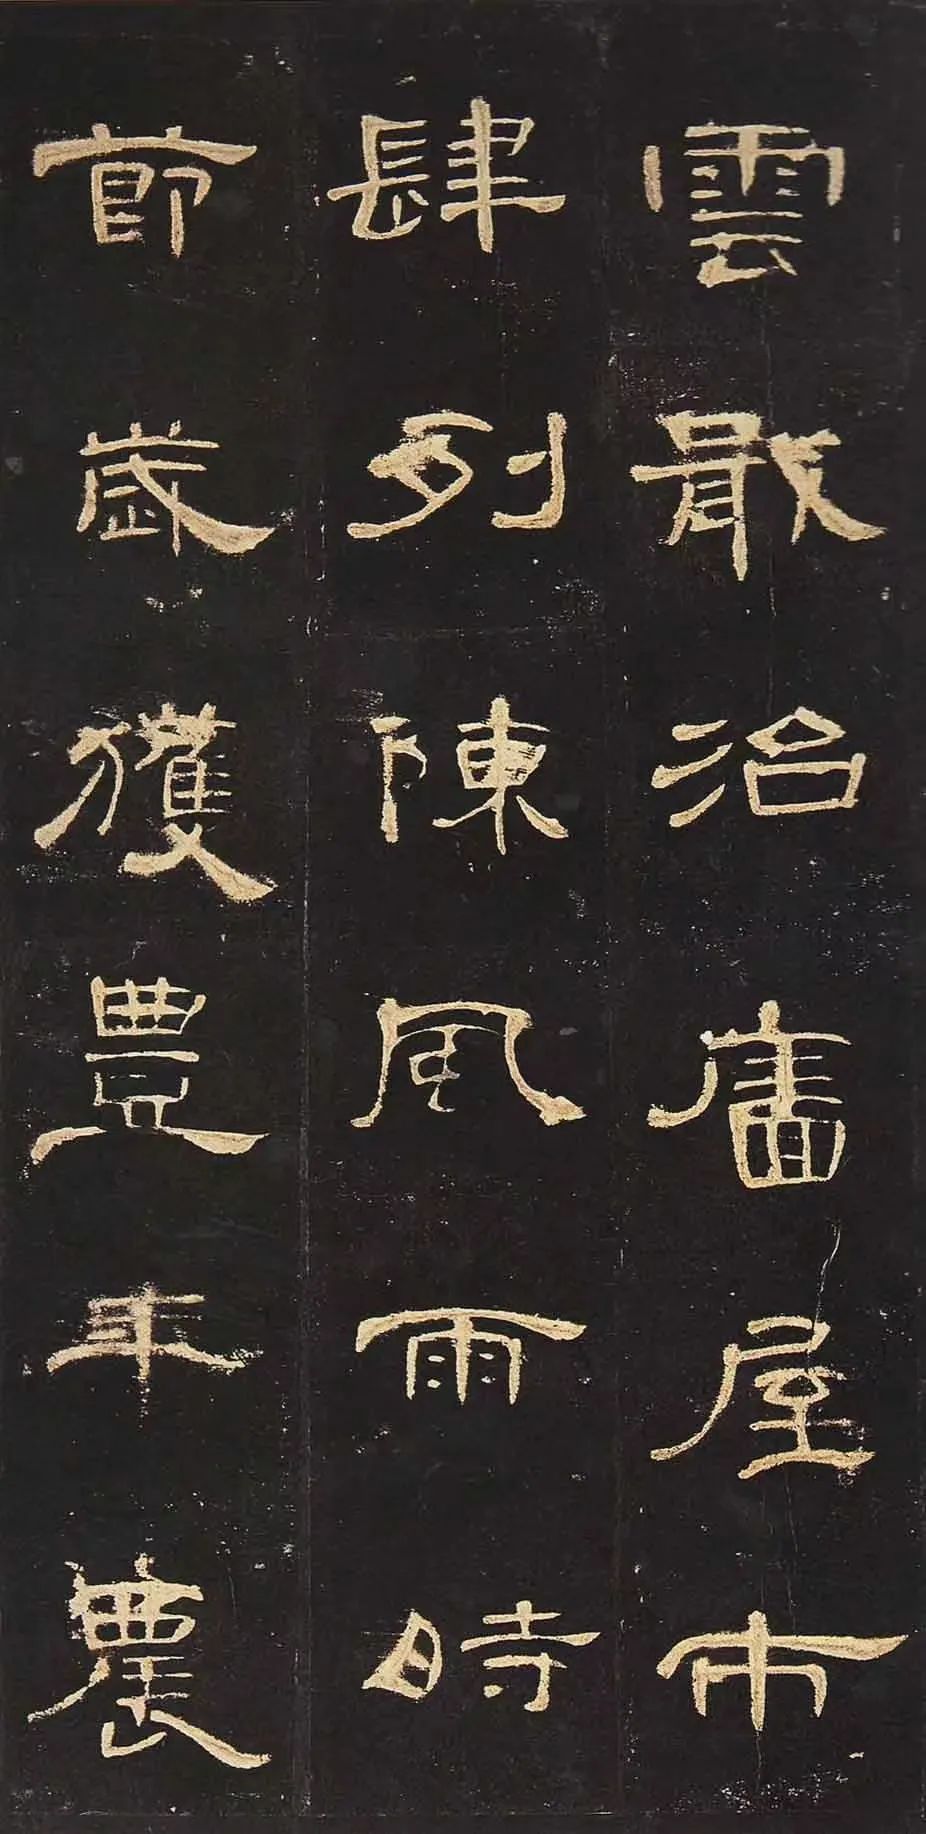 雲散治廧屋市
肆列陳風雨時
節歲獲豐年農